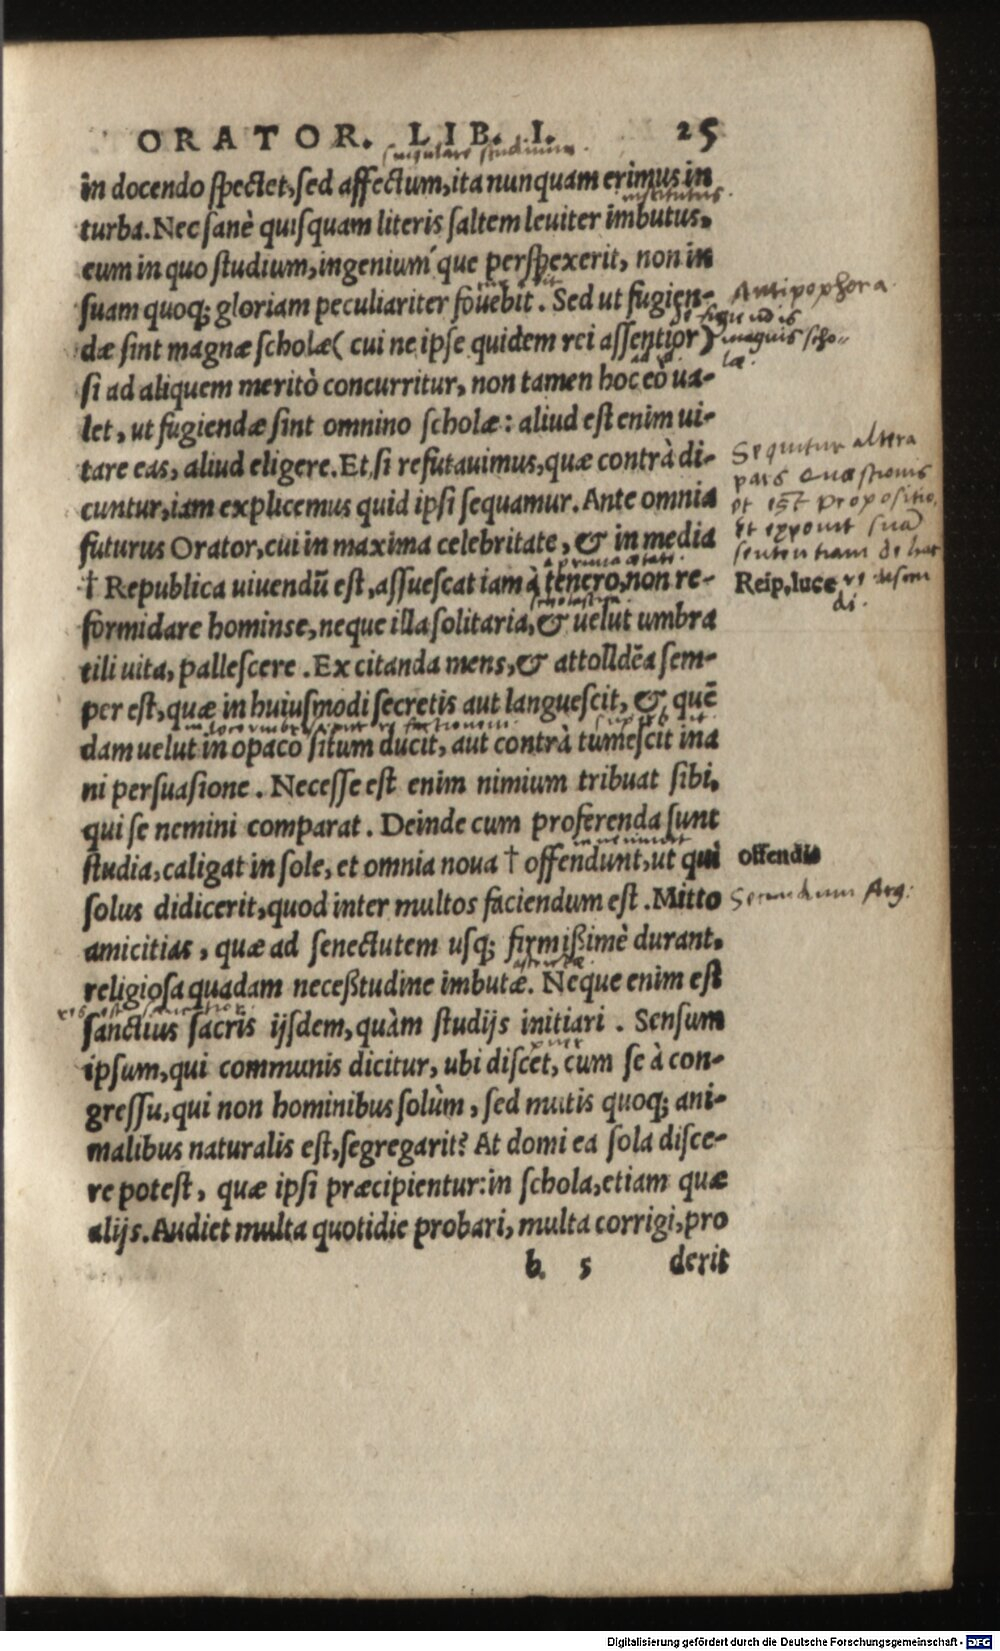 ORATOR. LIB. I. 25
singulare studium.
in docendo spectet, sed affectum, ita nunquam erimus in
institutus.
turba. Nec sanè quisquam literis saltem leuiter imbutus,
eum in quo studium, ingenium´que perspexerit, non in
suam quoq; gloriam peculiariter fouebit. Sed ut fugien-
Antipophora.
dæ sint magnæ scholæ( cui ne ipse quidem rei assentior)
de fugiendis
magnis scho-
læ.
si ad aliquem meritò concurritur, non tamen hoc eò ua-
let, ut fugiendæ sint omnino scholæ: aliud est enim ui-
tare eas, aliud eligere. Et si refutauimus, quæ contrà di-
cuntur, iam explicemus quid ipsi sequamur. Ante omnia
futurus Orator, cui in maxima celebritate, & in media
Sequitur altera
pars quæstionis
et est propositio,
et exponit suã
sententiam de hac
a prima ætate.
† Republica uiuendũ est, assuescat iam à tenero, non re-
Reip. luce
scholastica.
formidare hominse, neque illa solitaria, & uelut umbra
tili uita, pallescere. Excitanda mens, & attolldẽa sem-
per est, quæ in huiusmodi secretis aut languescit, & quẽ
dam uelut in opaco situm ducit, aut contrà tumescit ina
ni persuasione. Necesse est enim nimium tribuat sibi,
qui se nemini comparat. Deinde cum proferenda sunt
studia, caligat in sole, et omnia noua † offendunt, ut qui
offendit
solus didicerit, quod inter multos faciendum est. Mitto
Secundum Arg:
amicitias, quæ ad senectutem usq; firmißimè durant,
religiosa quadam neceßtudine imbutæ. Neque enim est
sanctius sacris ijsdem, quàm studijs initiari. Sensum
puer
ipsum, qui communis dicitur, ubi discet, cum se à con-
gressu, qui non hominibus solùm, sed mutis quoq; ani-
malibus naturalis est, segregarit? At domi ea sola disce-
re potest, quæ ipsi præcipientur: in schola, etiam quæ
alijs. Audiet multa quotidie probari, multa corrigi, pro
b. 5 derit
Digitalisierung gefördert durch die Deutsche Forschungsgemeinschaft - DFG